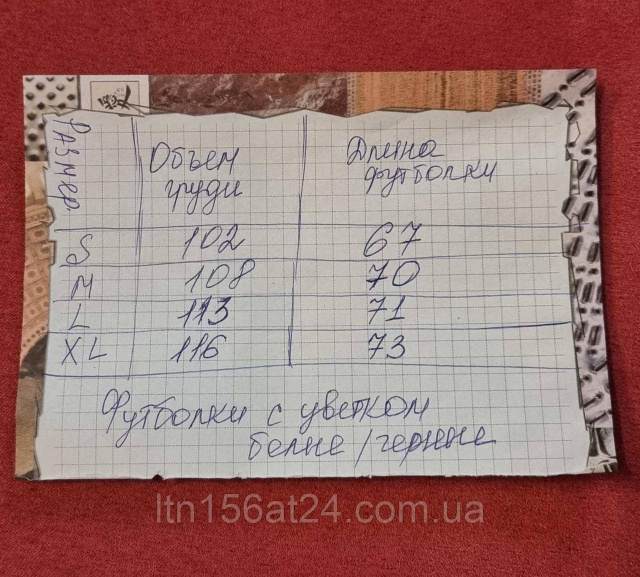 Размер Объем груди Длина футболки
S 102 67
M 108 70
L 113 71
XL 116 73
Футболки с цветком
белые / черные
ltn156at24.com.ua